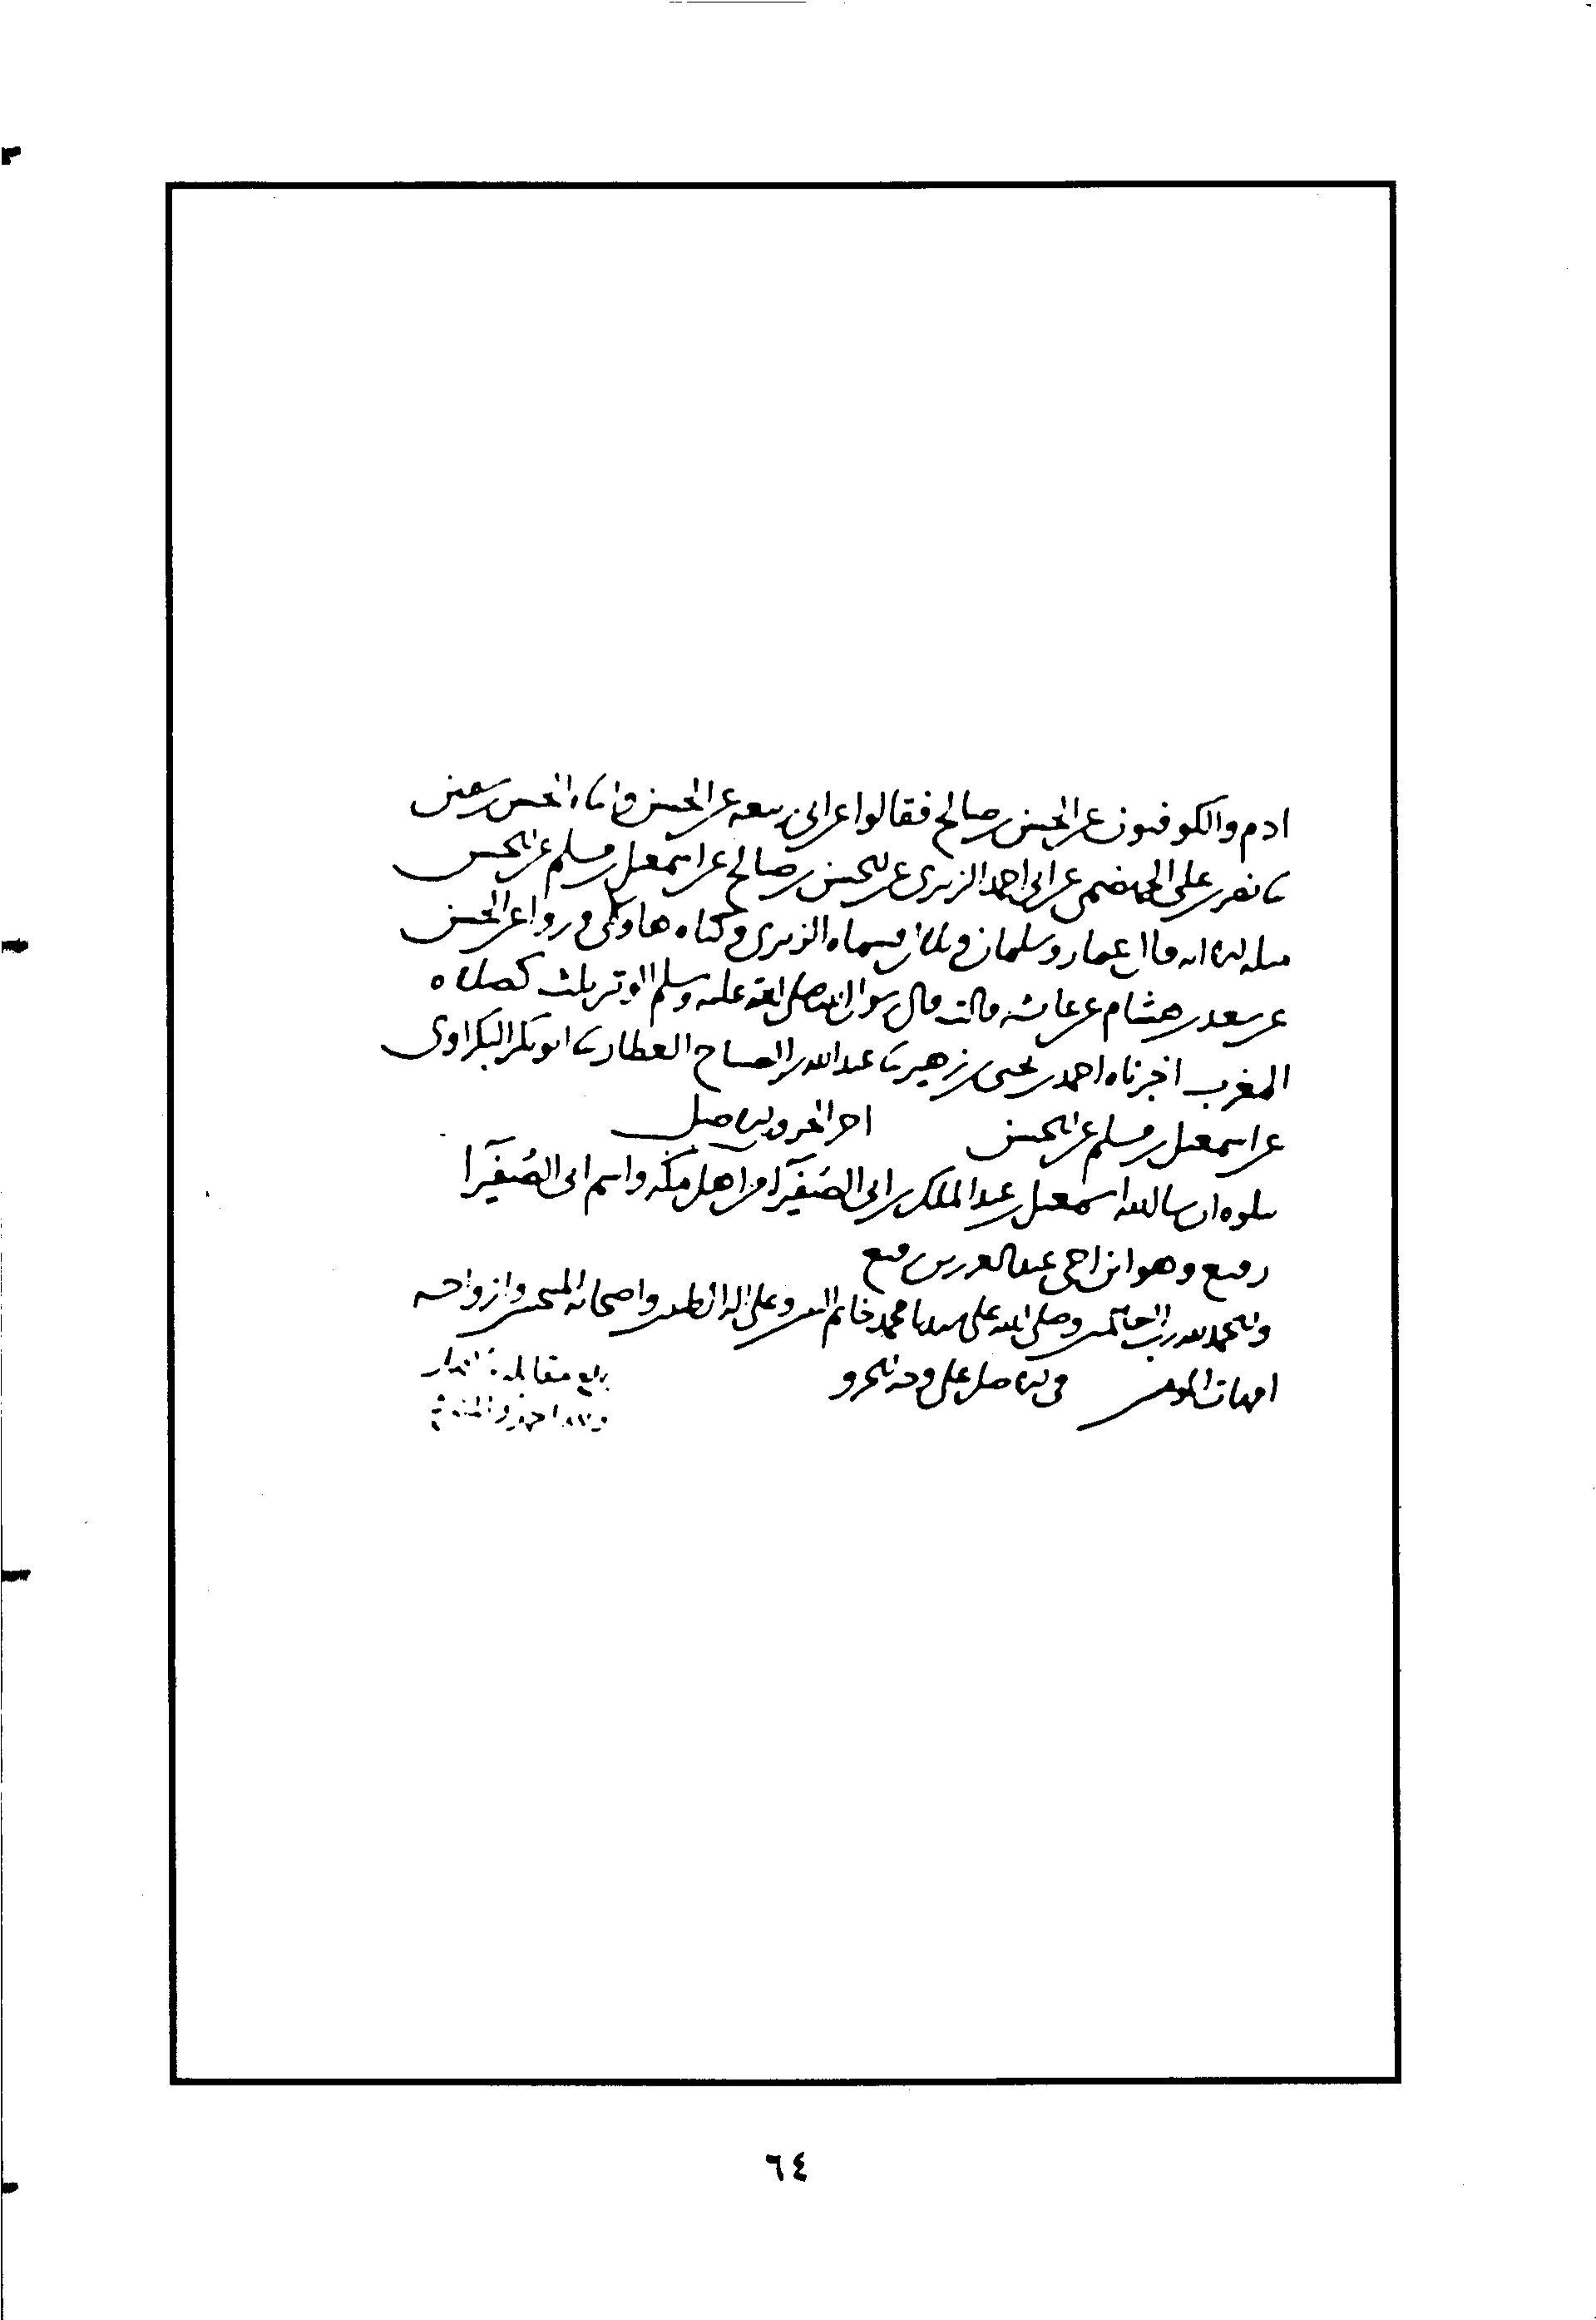 ادم والكوفيون عن الحسن بن صالح فقالوا عن ابي ربيعه عن الحسن
نصر بن علي الجهضمي عن ابي احمد الزبيري عن الحسن بن صالح عن اسمعيل بن مسلم عن الحسن
عمار وسلمان فسماه الزبيري وكناه هاولي ورواه عن الحسن
عن سعد بن هشام عن عائشه قالت قال رسول الله صلى الله عليه وسلم الوتر بثلث كصلاه
المغرب اخبرناه احمد بن يحيى بن زهير ثنا عبدالله بن الصباح العطار ثنا ابو بكر البكراوي
عن اسمعيل بن مسلم عن الحسن اخر الجزو من الاصل
يتلوه ان شا الله اسمعيل بن عبد الملك بن ابي الصُفَيرا من اهل مكه واسم ابي الصُفَيرا
رفيع وهو ابن اخي عبد العزيز بن رفيع
والحمد لله رب العالمين وصلى الله على سيدنا محمد خاتم النبيين وعلى اله الطيبين واصحابه المنتجبين وازواجه
امهات المومنين في الاصل على وجه الجزو
بلغ مقابله
٦٤